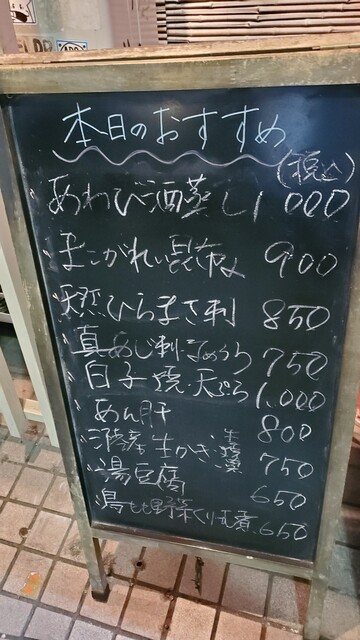 本日のおすすめ
(税込)
あわび酒蒸し 1000
まこがれい昆布〆 900
天然ひらまさ刺 850
真あじ刺・なめろう 750
白子焼・天ぷら 1,000
あん肝 800
産生かき 750
湯豆腐 650
鳥もも野菜クリーム煮 650